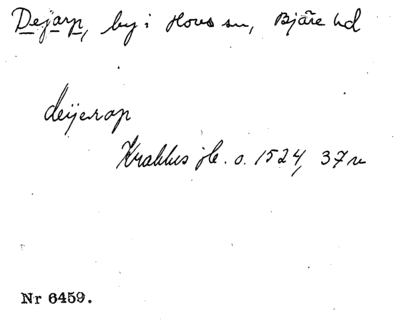 Dejarp, by i Hovs sn, Bjäre hd
deijerop
Krabbes jb. o. 1524, 37 r
Nr 6459.